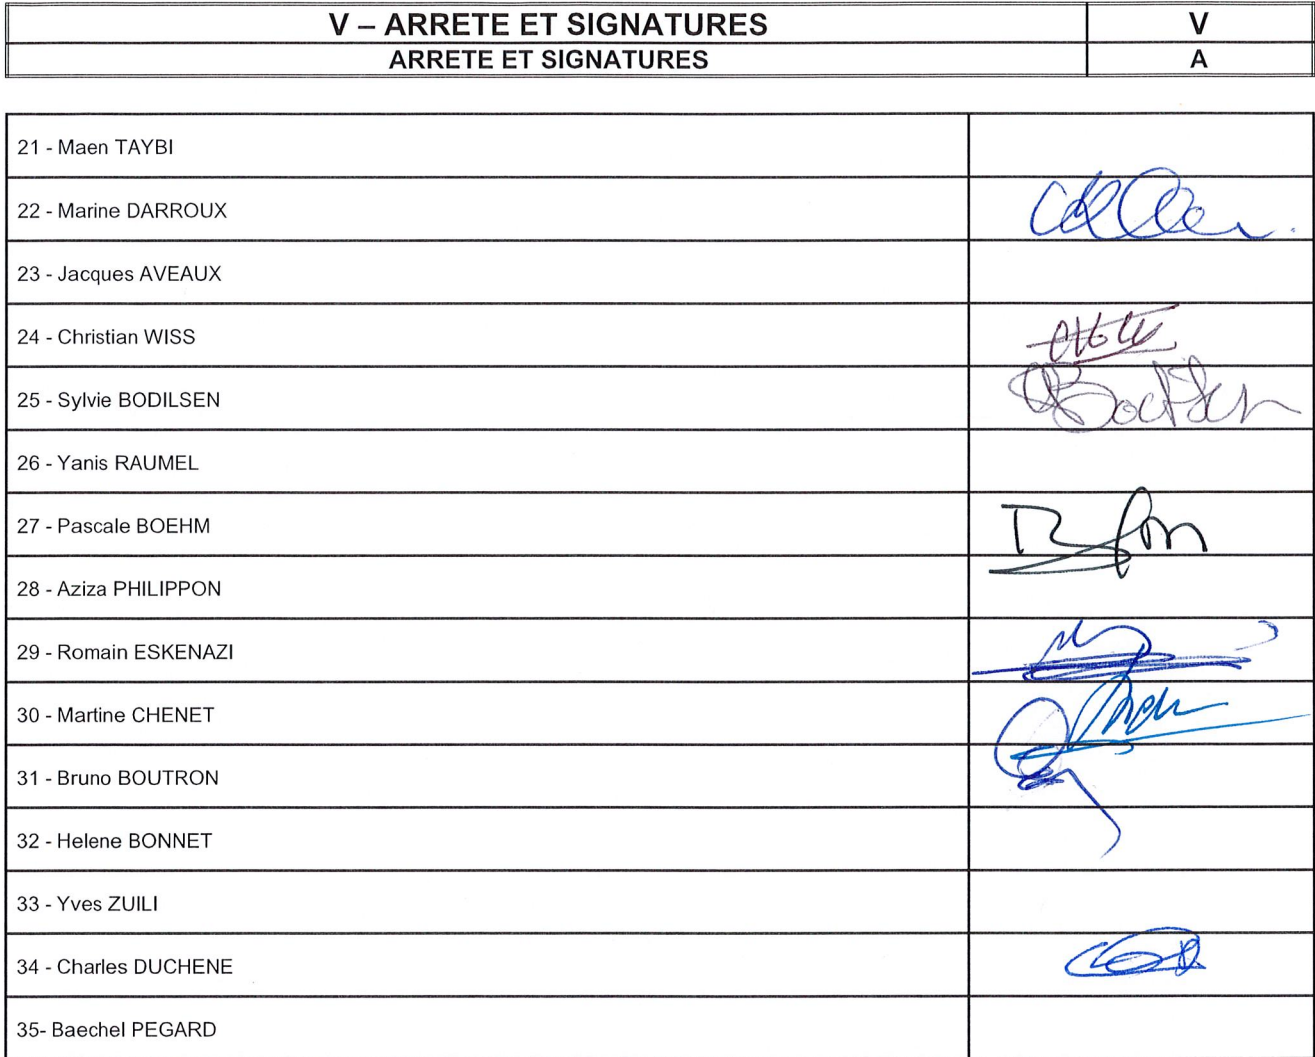 V – ARRETE ET SIGNATURES V
ARRETE ET SIGNATURES A
21 - Maen TAYBI
22 - Marine DARROUX
23 - Jacques AVEAUX
24 - Christian WISS
25 - Sylvie BODILSEN
26 - Yanis RAUMEL
27 - Pascale BOEHM
28 - Aziza PHILIPPON
29 - Romain ESKENAZI
30 - Martine CHENET
31 - Bruno BOUTRON
32 - Helene BONNET
33 - Yves ZUILI
34 - Charles DUCHENE
35- Baechel PEGARD